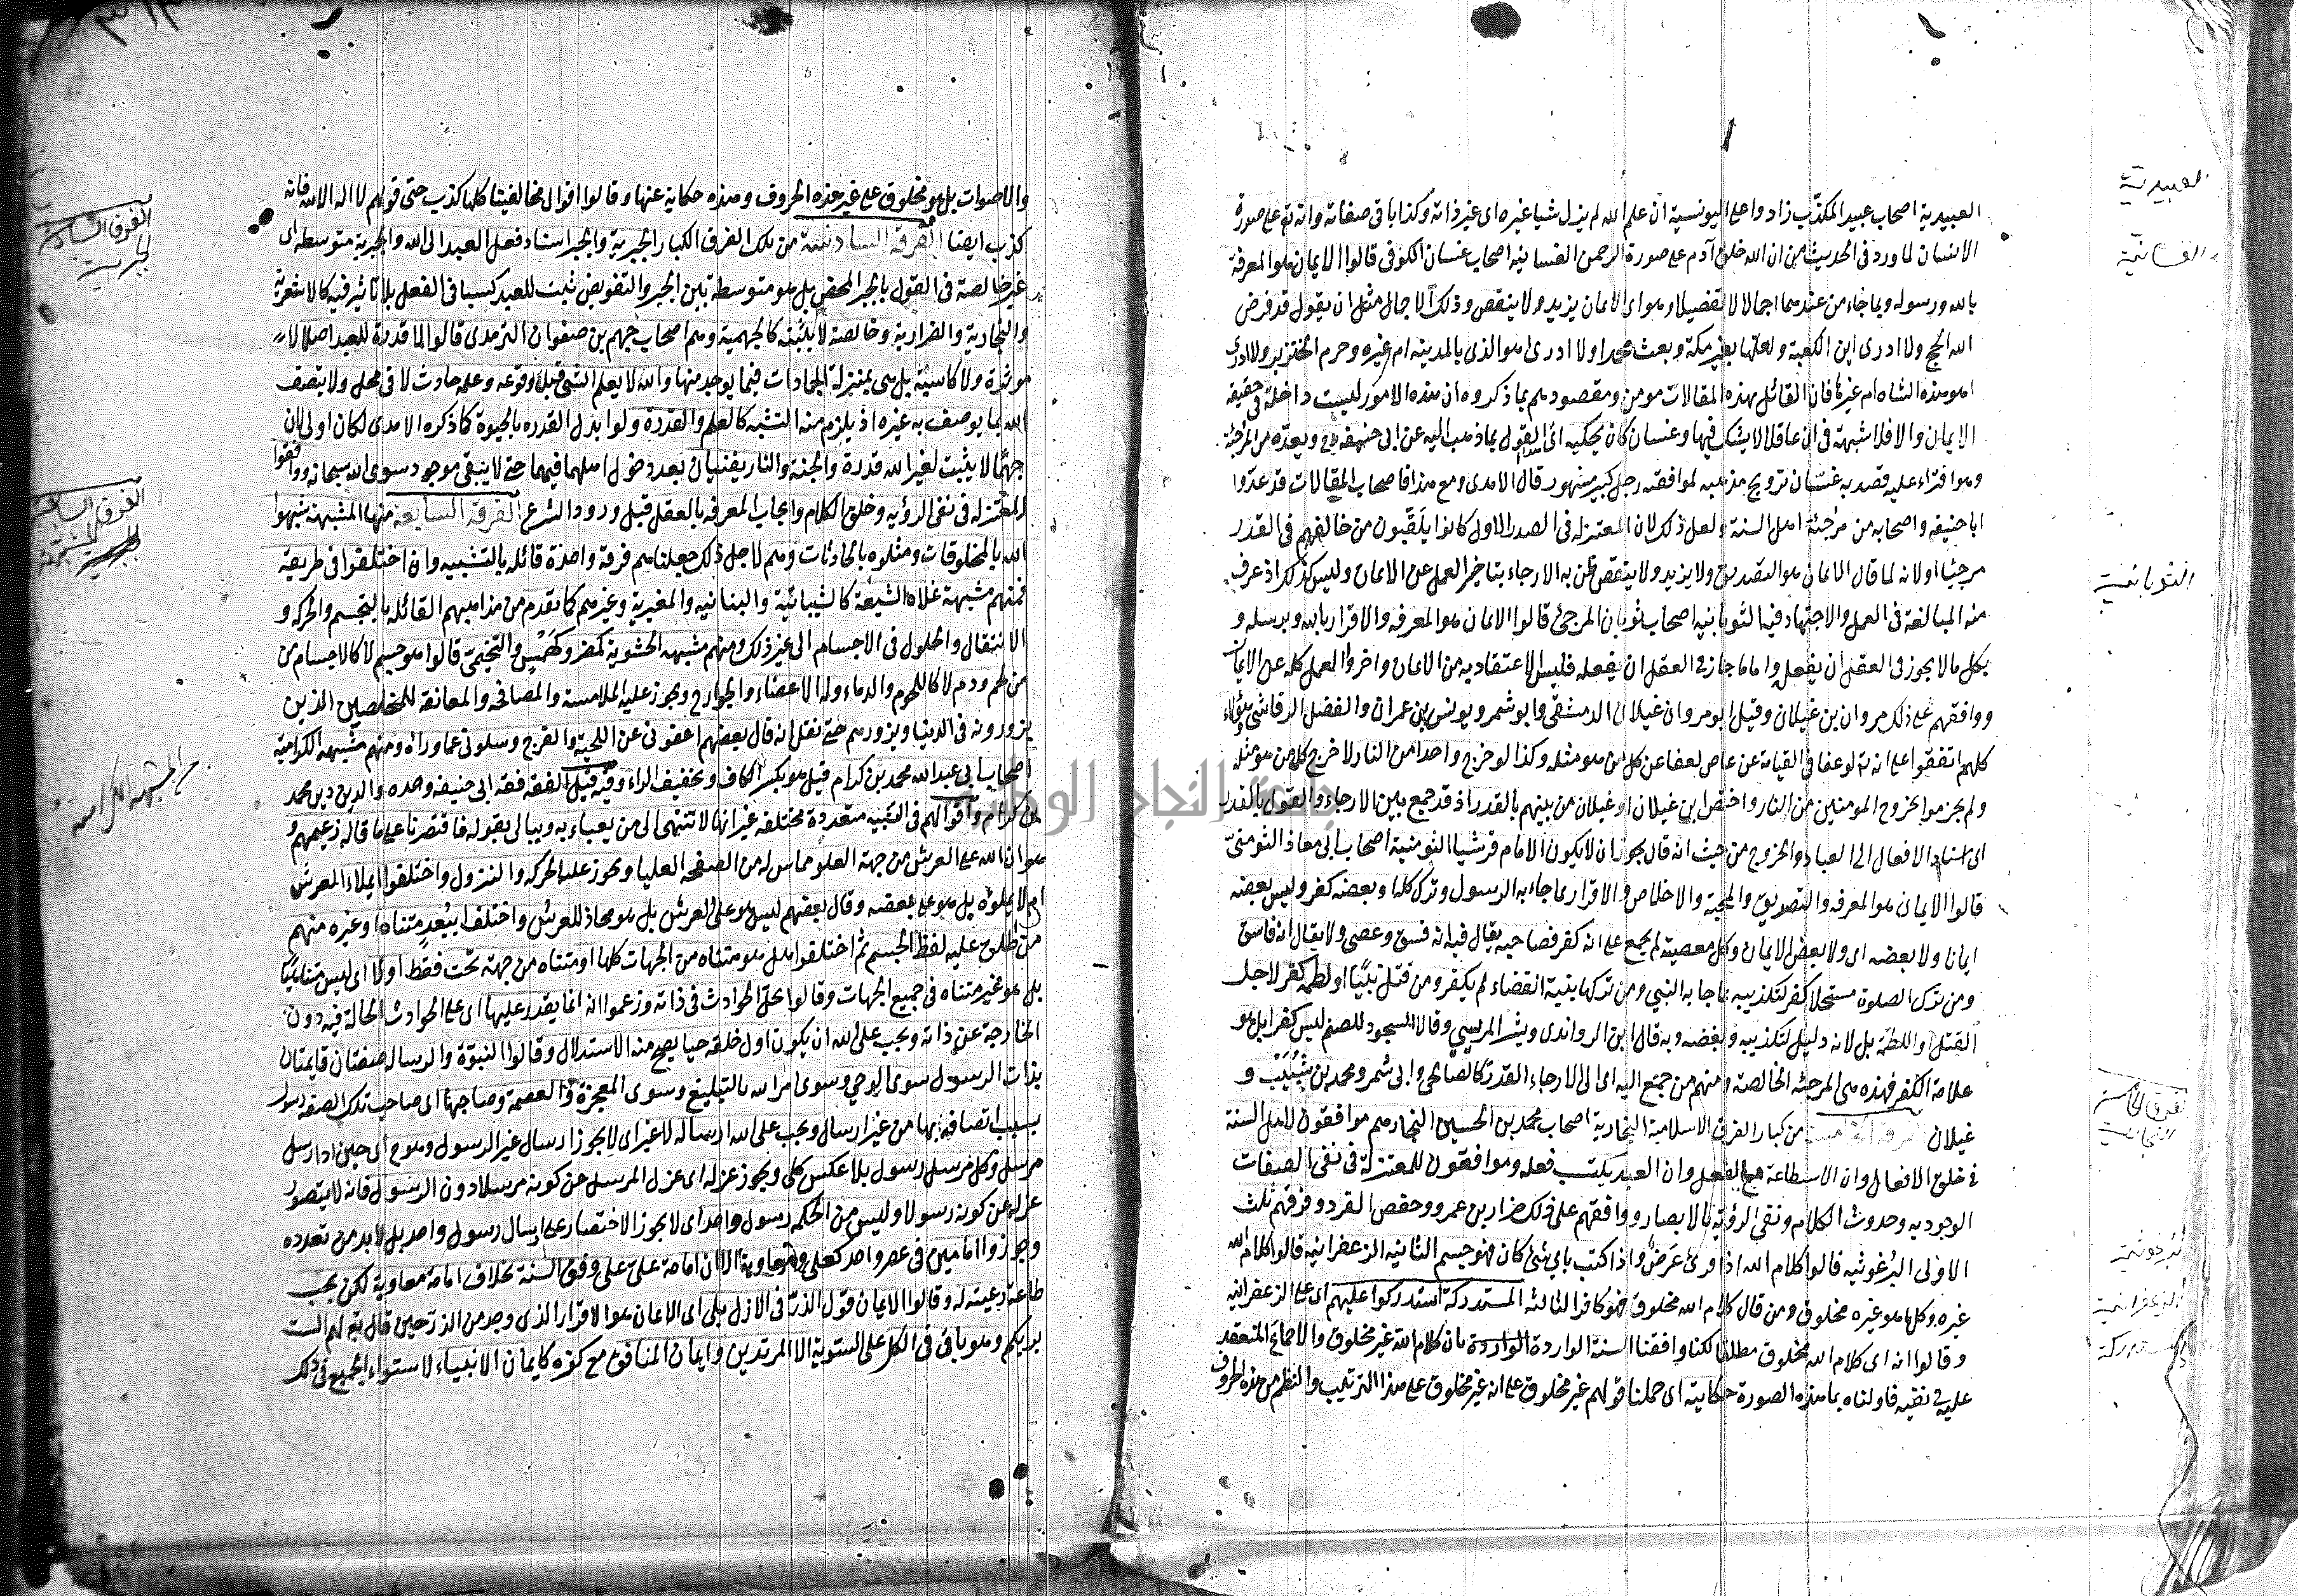 العبيدية اصحاب عبيد المكذّب زادوا على اليونسية ان علم الله لم يزل شيا غيره اى غير ذاته وكذا باقى صفاته وانه تع على صورة
الانسان لما ورد فى الحديث من ان الله خلق آدم على صورة الرحمن الغسانيه اصحاب غسان الكوفى قالوا الايمان هو المعرفة
بالله ورسوله وبما جاء من عندهما اجمالا لا تفصيلا وهو اى الايمان يزيد ولا ينقص وذلك الاجمال مثل ان يقول قد فرض
الله الحج ولا ادرى اين الكعبة ولعلها بغير مكة وبعث محمدا ولا ادرى اهو الذى بالمدينه ام غيره وحرم الخنزير ولا ادرى
اهو هذه الشاه ام غيرها فان القائل بهذه المقالات مومن ومقصودهم بما ذكروه ان هذه الامور ليست داخلة فى حقيقه
الايمان والا فلا شبهة فى ان عاقلا لا يشك فيها وغسان كان يحكيه اى القول بما ذهب اليه عن ابى حنيفه ويعدّه من المرجئة
وهو افتراء عليه قصد به غسان ترويج مذهبه لموافقة رجل كبير مشهور قال الامدى ومع هذا فاصحاب المقالات قد عدّوا
ابا حنيفه واصحابه من مرجئة اهل السنة ولعل ذلك لان المعتزله فى الصدر الاول كانوا يلقّبون من خالفهم فى القدر
مرجيا او لانه لما قال الايمان هو التصديق ولا يزيد ولا ينقص ظن به الارجاء بتاخير العمل عن الايمان وليس كذلك اذ عرف
منه المبالغة فى العمل والاجتهاد فيه الثوبانيه اصحاب ثوبان المرجئ قالوا الايمان هو المعرفه والاقرار بالله وبرسله و
بكل ما لا يجوز فى العقل ان يفعله واما ما جاز فى العقل ان يفعله فليس الاعتقاد به من الايمان واخروا العمل كله عن الايمان
ووافقهم على ذلك مروان بن غيلان وقيل ابو مروان غيلان الدمشقى وابو شمر ويونس بن عمران والفضل الرقاشى وهولاء
كلهم اتفقوا على انه تع لو عفا فى القيامة عن عاص لعفا عن كل من هو مثله وكذا لو خرج واحدا من النار لاخرج كل من هو مثله
ولم يجزموا بخروج المومنين من النار واختص ابن غيلان او غيلان من بينهم بالقدر اذ قد جمع بين الارجاء والقول بالقدر
اى اسناد الافعال الى العباد والخروج من حيث انه قال يجوز ان لا يكون الامام قرشيا الثومنية اصحاب ابى معاذ الثومنى
قالوا الايمان هو المعرفه والتصديق والمحبة والاخلاص والاقرار بما جاء به الرسول وترك كله او بعضه كفر وليس بعضه
ايمانا ولا بعضه اى ولا بعض الايمان وكل معصية لم يجمع على انه كفر فصاحبه يقال فيه انه فسق وعصى ولا يقال انه فاسق
ومن ترك الصلوة مستحلا كفر لتكذيبه بما جا به النبي ومن تركها بنية القضاء لم يكفر ومن قتل نبيًّا او لطمه كفر لا جل
القتل او اللطمة بل لانه دليل لتكذيبه وبغضه وبه قال ابن الراوندى وبشر المريسي وقالا السجود للصنم ليس كفرا بل هو
علامة الكفر فهذه هى المرجئه الخالصة ومنهم من جمع اليه اى الى الارجاء القدر كالصالحى وابى شمر ومحمد بن شبيب و
غيلان الفرقة الخامسة من كبار الفرق الاسلامية النجارية اصحاب محمد بن الحسين النجار هم موافقون لاهل السنة
فى خلق الافعال وان الاستطاعة مع الفعل وان العبد يكتسب فعله وموافقون للمعتزلة فى نفى الصفات
الوجوديه وحدوث الكلام ونفى الرؤية بالابصار ووافقهم على ذلك ضرار بن عمرو وحفص الفرد وفرقهم ثلث
الاولى البرغوثيه قالوا كلام الله اذا قرئ عَرَضٌ واذا كتب باى شئ كان فهو جسم الثانيه الزعفرانيه قالوا كلام الله
غيره وكل ما هو غيره مخلوق ومن قال كلام الله مخلوق فهو كافر الثالثه المستدركة استدركوا عليهم اى على الزعفرانيه
وقالوا انه اى كلام الله مخلوق مطلقا لكنا وافقنا السنة الواردة الواردة بان كلام الله غير مخلوق والاجماع المنعقد
عليه فى نفيه فاولناه بما هذه الصورة حكايته اى حملنا قولهم غير مخلوق على انه غير مخلوق على هذا الترتيب والنظم من هذه الحروف
العبيدية
الغسانية
الثوبانية
الفرق الخامسة
النجارية
البرغوثية
الزعفرانية
المستدركة
والاصوات بل هو مخلوق على غير هذه الحروف وهذه حكاية عنها وقالوا اقوال مخالفينا كلها كذب حتى قولهم لا اله الا الله فانه
كذب ايضا الفرقه السادسة من تلك الفرق الكبار الجبرية والجبر اسناد فعل العبد الى الله والجبرية متوسطه اى
غير خالصة فى القول بالجبر المحض بل هو متوسطة بين الجبر والتفويض تثبت للعبد كسبا فى الفعل بلا تاثير فيه كالاشعرية
والنجارية والضرارية وخالصة لا يثبته كالجهمية وهم اصحاب جهم بن صفوان الترمذى قالوا لا قدرة للعبد اصلا لا
موثرة ولا كاسبة بل هى بمنزلة الجمادات فيما يوجد منها والله لا يعلم الشى قبل وقوعه وعلمه حادث لا فى محل ولا يتصف
الله بما يوصف به غيره اذ يلزم منه التشبه كالعلم والقدرة ولو ابدل القدره بالحيوة كما ذكره الامدى لكان اولى لان
جهمًا لا يثبت لغير الله قدرة والجنة والنار يفنيان بعد دخول اهلهما فيهما حتى لا يبقى موجود سوى الله سبحانه ووافقوا
المعتزله فى نفى الرؤيه وخلق الكلام وايجاب المعرفه بالعقل قبل ورود الشرع الفرقه السابعة منها المشبهة شبهوا
الله بالمخلوقات ومثلوه بالحادثات وهم لاجل ذلك جعلناهم فرقه واحدة قائله بالتشبيه وان اختلفوا فى طريقه
فمنهم مشبهة غلاه الشيعة كالسبائية والبنانيه والمغيرية وغيرهم كما تقدم من مذاهبهم القائله بالتجسم والحركه و
الانتقال والحلول فى الاجسام الى غير ذلك ومنهم مشبهه الحشوية كمضر وكَهْمَس والهجيمى قالوا هو جسم لا كالاجسام من
من لحم ودم لا كاللحوم والدماء وله الاعضاء والجوارح ويجوز عليه الملامسة والمصافحه والمعانقة للمخلصين الذين
يزورونه فى الدنيا ويزورهم حتى نقل انه قال بعضهم اعفونى عن اللحية والفرج وسلونى عما وراه ومنهم مشبهه الكراميه
اصحاب ابى عبد الله محمد بن كرام قيل هو بكسر الكاف وتخفيف الراء وفيه قيل الفقه فقه ابى حنيفه وحده والدين دين محمد
بن كرام واقوالهم فى التشبيه متعددة مختلفه غير انها لا تنتهى الى من يعباء به ويبالى بقوله فاقتصرنا على ما قاله زعيمهم و
هو ان الله على العرش من جهة العلو مماس له من الصفحه العليا ويجوز عليه الحركه والنزول واختلفوا ايملاء العرش
ام لا يملؤه بل هو على بعضه وقال بعضهم ليس هو على العرش بل هو محاذ للعرش واختلف ابِبُعدٍ متناه او غيره منهم
من اطلق عليه لفظ الجسم ثم اختلفوا هل هو متناه من الجهات كلها او متناه من جهة تحت فقط اولا اى ليس متناهيًا
بل هو غير متناه فى جميع الجهات وقالوا تحل الحوادث فى ذاته وزعموا انه انما يقدر عليها اى على الحوادث الحالة فيه دون
الخارجة عن ذاته ويجب على الله ان يكون اول خلقه حيا يصح منه الاستدلال وقالوا النبوّة والرساله صفتان قايمتان
بذات الرسول سوى الوحي وسوى امر الله بالتبليغ وسوى المعجزة والعصمة وصاحبها اى صاحب تلك الصفة رسول
بسبب اتصافه بها من غير ارسال ويجب على الله ارساله لا غير اى لا يجوز ارسال غير الرسول وهو ح اى حين اذ ارسل
مرسل وكل مرسل رسول بلا عكس كلى ويجوز عزله اى عزل المرسل عن كونه مرسلا دون الرسول فانه لا يتصور
عزله عن كونه رسولا وليس من الحكمه رسول واحد اى لا يجوز الاختصار على ارسال رسول واحد بل لا بد من تعدده
وجوزوا امامين فى عصر واحد كعلى ومعاوية الا ان امامة على على وفق السنة بخلاف امامة معاوية لكن يجب
طاعة رعيته له وقالوا الايمان قول الذر فى الازل بلى اى الايمان هو الاقرار الذى وجد من الذر حين قال تع لهم الست
بربكم وهو باقى فى الكل على السوية الا المرتدين وايمان المنافق مع كفره كايمان الانبياء لاستواء الجميع فى ذلك
الفرق السادسة
الجبرية
الفرق السابعة
المشبهة
المشبهه الكرامية
جامعة النجاح الوطنية